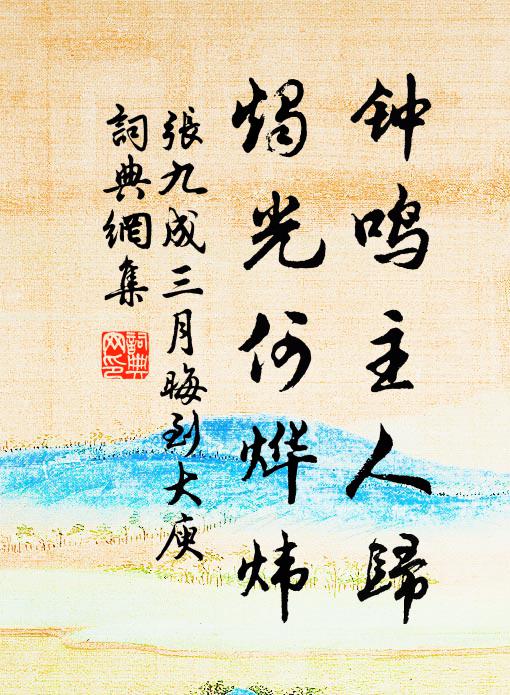 钟鸣主人歸
燭光何烨炜
張九成三月晦到大庾
詞典網集
詞典網印